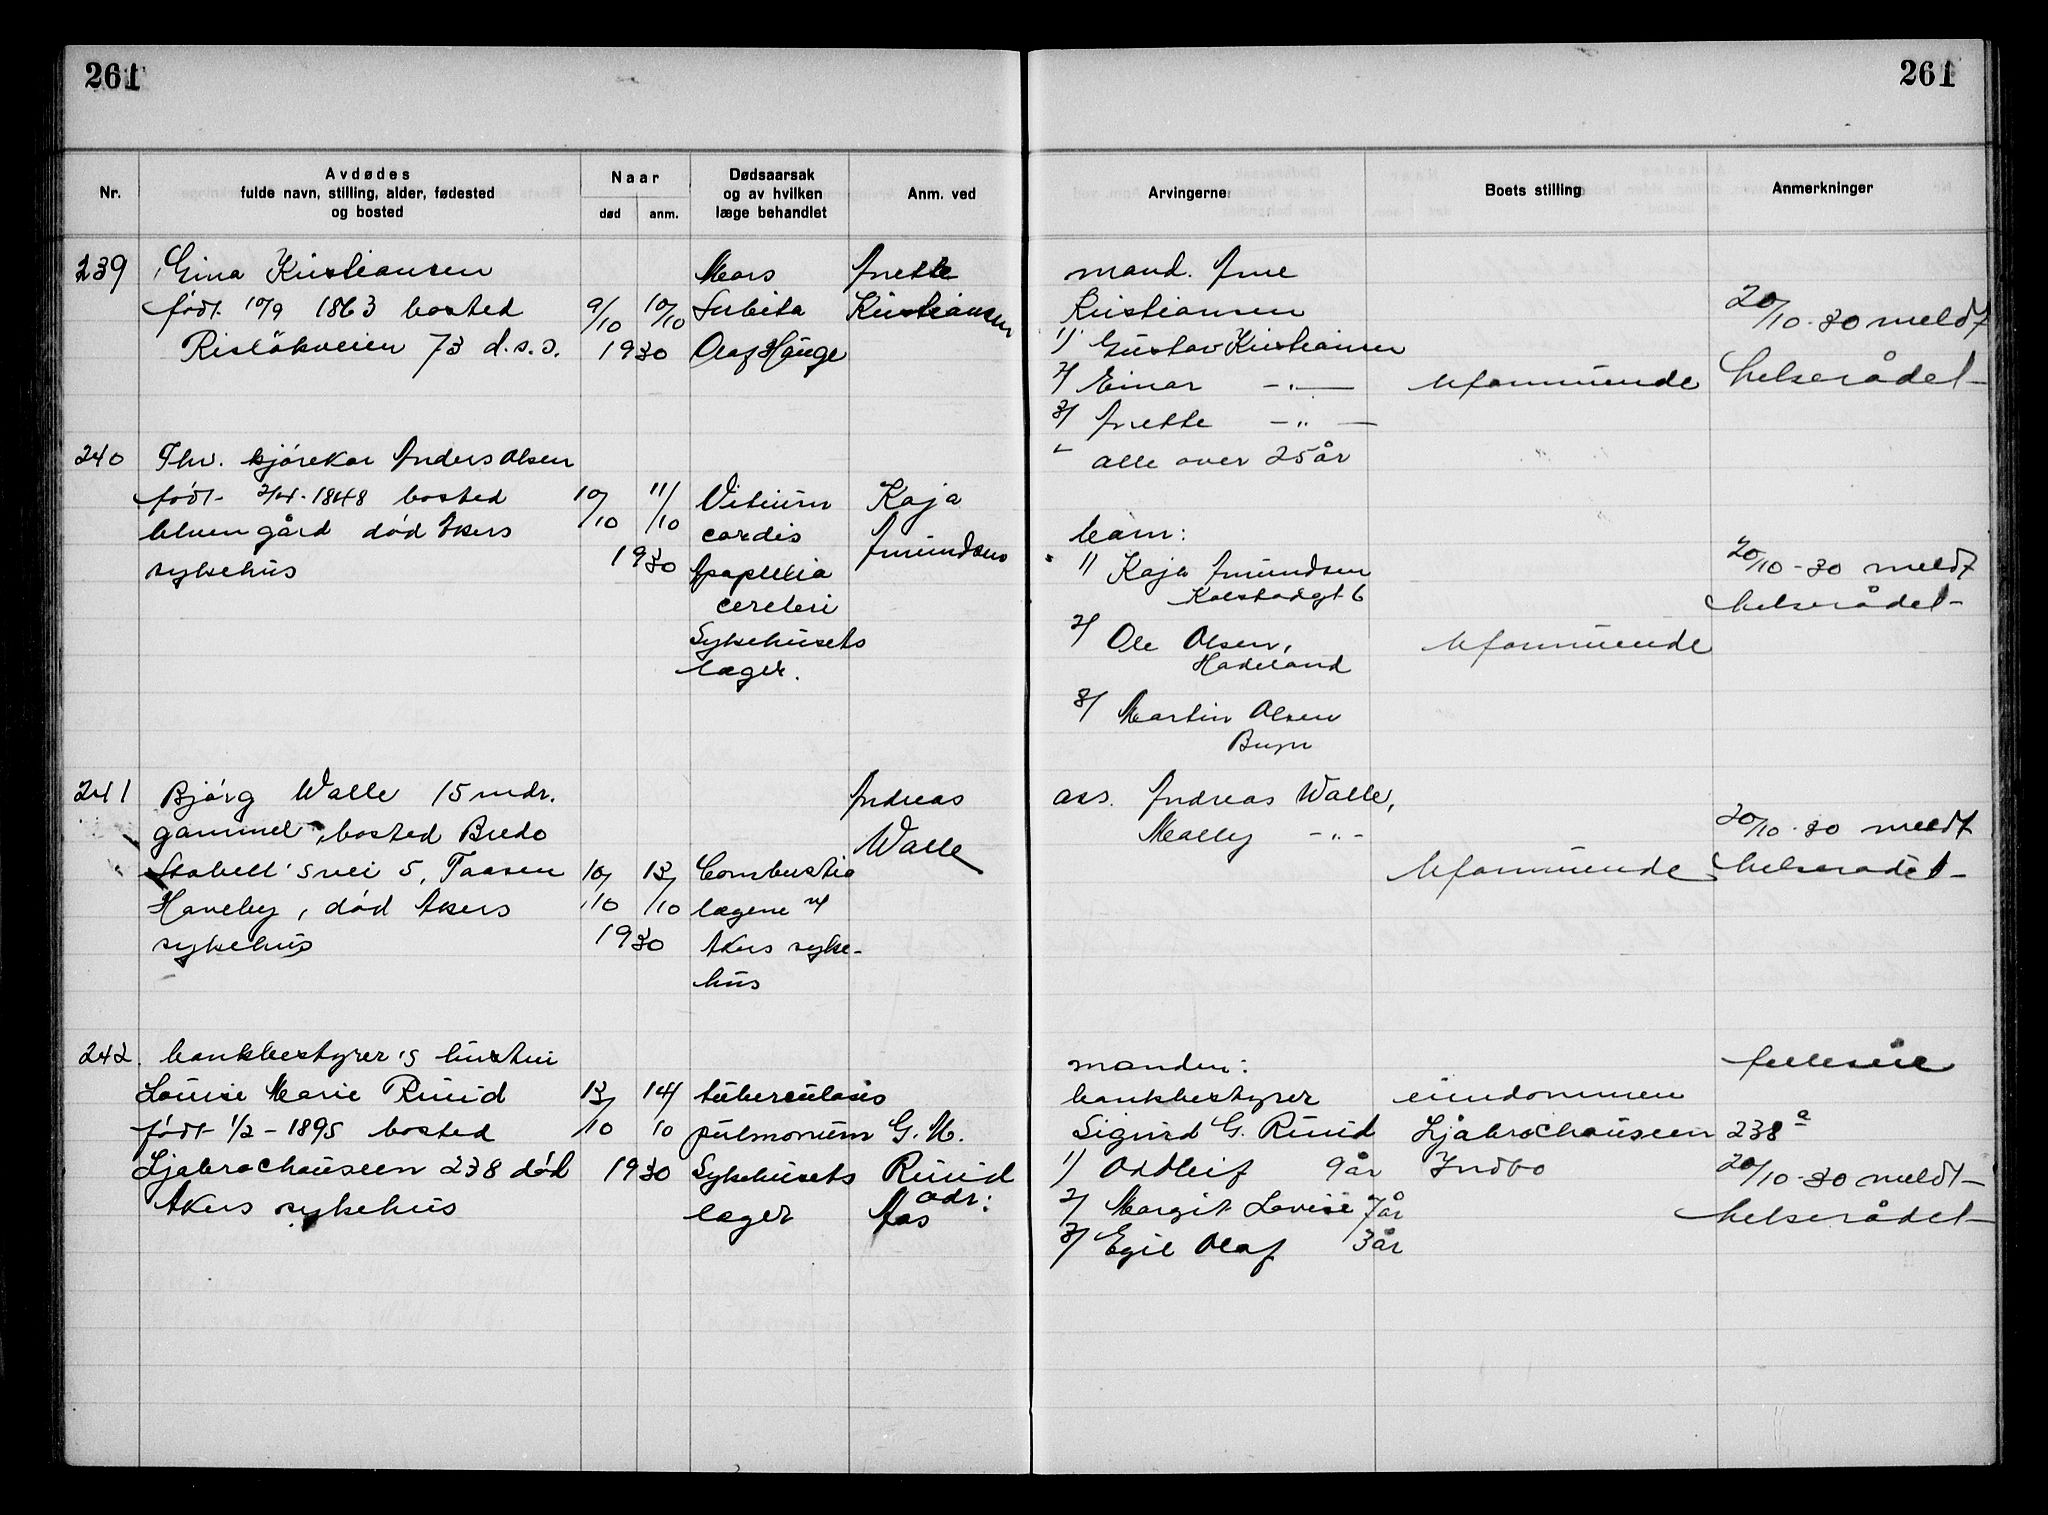 261
261
Nr.
Avdødes
fulde navn, stilling, alder, fødested
og bosted
Naar
død
anm.
Dødsaarsak
og av hvilken
læge behandlet
Anm. ved
Arvingerne
Boets stilling
Anmerkninger
239
Gina Kristiansen
født 10/9 1863 bosted
Risløkveien 73 d.s.s.
9/10
10/10
1930
Mors
Subita
Olaf Hauge
Anette
Kristiansen
mand. Arne
Kristiansen
1) Gustav Kristiansen
2) Einar -"-
3) Anette -"-
alle over 25 år
Uformuende
20/10-30 meldt
helserådet
240
Fhv. kjørekar Anders Olsen
født 2/4-1848 bosted
gård død Akers
sykehus
10/10
11/10
1930
Vitium
cordis
Apoplexia
cerebri
Sykehusets
læger.
Kaja
Amundsen
barn:
1) Kaja Amundsen
Kolstadgt 6
2) Ole Olsen,
Hadeland
3) Martin Olsen
Uformuende
20/10-30 meldt
helserådet
241
Bjørg Walle 15 mdr.
gammel, bosted Bredo
Stabell's vei 5, Taasen
Haveby, død Akers
sykehus
10/10
13/10
1930
Combustio
lægene v/
Akers syke-
hus
Andreas
Walle
ass. Andreas Walle,
Mally -"-
Uformuende
20/10-30 meldt
helserådet
242.
bankbestyrer's hustru
Louise Marie Ruud
født 1/2-1895 bosted
Ljabrochauseen 238 død
Akers sykehus
13/10
14/10
1930
tuberculosis
pulmonum
Sykehusets
læger
G. M.
Ruud
adr:
Aas
manden:
bankbestyrer
Sigurd G. Ruud
1) Oddleif 9 år
2) Margit Lovise 7 år
3) Egil Olaf 3 år
eiendommen
Ljabrochauseen 238 a
Indbo
felleseie
20/10-30 meldt
helserådet